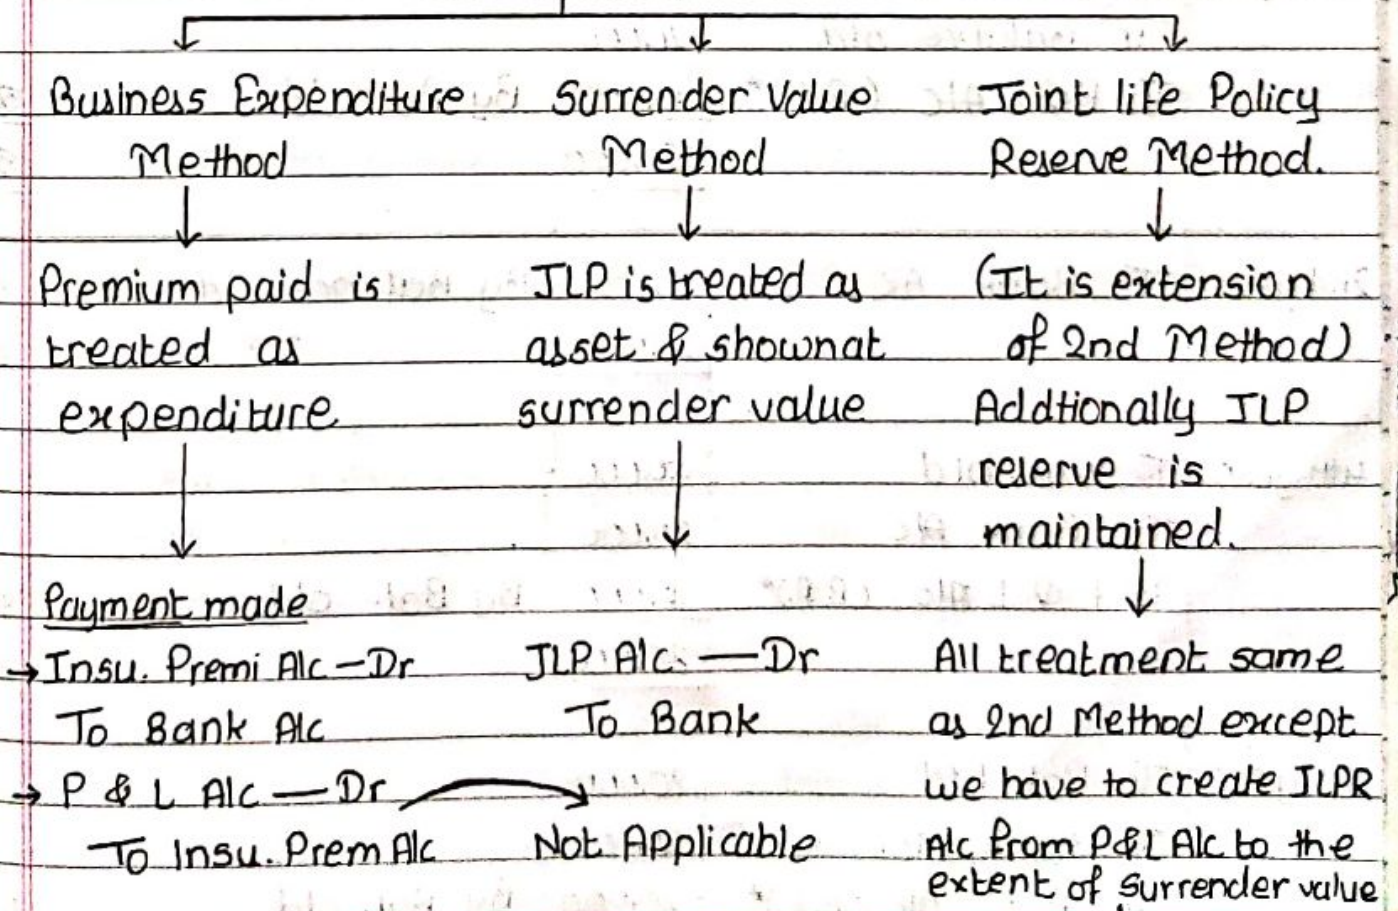 Business Expenditure
Method
Premium paid is
treated as
expenditure
Payment made
→ Insu. Premi A/c – Dr
To Bank A/c
→ P & L A/c — Dr
To Insu. Prem A/c
Surrender Value
Method
JLP is treated as
asset & shownat
surrender value
JLP A/c. — Dr
To Bank
Not Applicable
Joint life Policy
Reserve Method.
(It is extension
of 2nd Method)
Addtionally JLP
reserve is
maintained.
All treatment same
as 2nd Method except
we have to create JLPR
A/c from P&L A/c to the
extent of surrender value